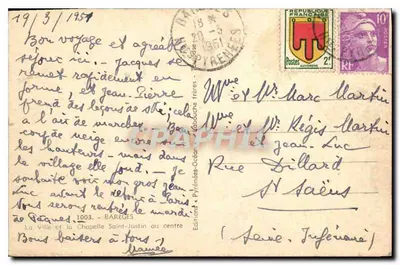 19/3/1951
Bon voyage et agréable
séjour ici. Jacques se
remet rapidement en
forme, et Jean-Pierre
prend des leçons de ski, cela
a l'air de marcher. Bon
coup de neige encore
les hauteurs - mais dans
le village elle fond. Je
souhaite voir mon gros Jean
Luc avant le retour à Paris.
Nous serons rentrés le mardi
de Pâques.
1003. - BARÈGES
La Ville et la Chapelle Saint-Justin au centre
Bons baisers à tous
BARÈGES
18 H
20 - 3
1951
PYRÉNÉES
RÉPUBLIQUE FRANÇAISE
Postes 2F
AUVERGNE
10F
RF
Mme et Mr Marc Martin
Mme et Mr Régis Martin
et Jean-Luc
Rue Dillard
St Saëns
(Seine Inférieure)